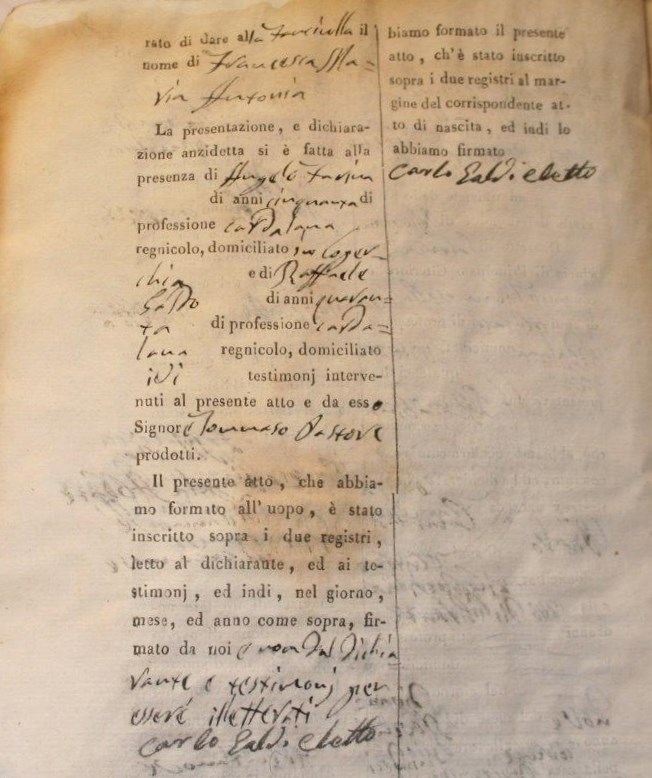 rato di dare alla fanciulla il
nome di Francesca Ma=
ria Antonia
La presentazione, e dichiara-
zione anzidetta si è fatta alla
presenza di Angelo Farina
di anni cinquanta di
professione cardalana
regnicolo, domiciliato in Coper=
chia e di Raffaele
Galdo di anni quaran=
ta di professione carda=
lana regnicolo, domiciliato
ivi testimonj interve-
nuti al presente atto e da esso
Signore Tommaso Pastore
prodotti.
Il presente atto, che abbia-
mo formato all'uopo, è stato
inscritto sopra i due registri,
letto al dichiarante, ed ai te-
stimonj, ed indi, nel giorno,
mese, ed anno come sopra, fir-
mato da noi e non dal dichia
rante e testimonj per
essere illetterati
Carlo Galdi eletto
biamo formato il presente
atto, ch'è stato inscritto
sopra i due registri al mar-
gine del corrispondente at-
to di nascita, ed indi lo
abbiamo firmato
Carlo Galdi eletto